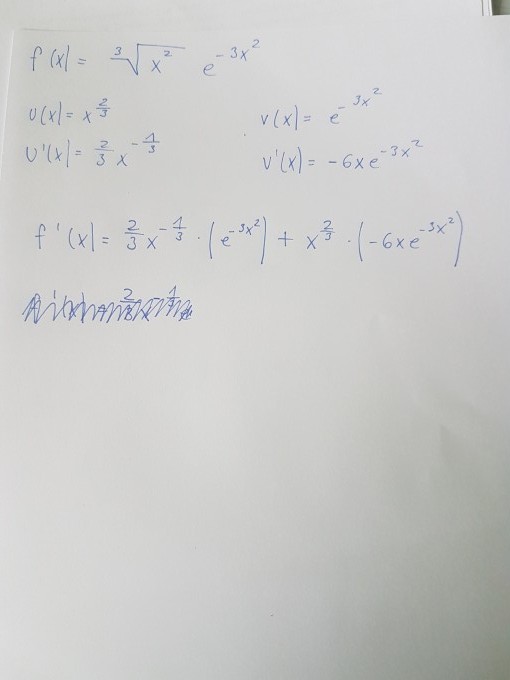 f(x)= ∛x² e^{-3x²}
u(x)= x^{2/3} v(x)= e^{-3x²}
u'(x)= 2/3 x^{-1/3} v'(x)= -6xe^{-3x²}
f'(x)= 2/3 x^{-1/3} · (e^{-3x²}) + x^{2/3} · (-6xe^{-3x²})